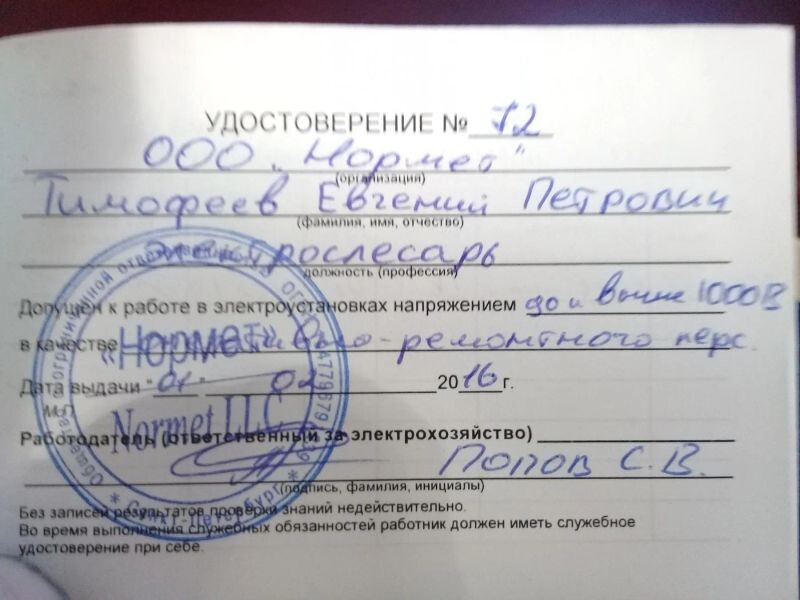 УДОСТОВЕРЕНИЕ № 72
ООО „Нормет"
(организация)
Тимофеев Евгений Петрович
(фамилия, имя, отчество)
Электрослесарь
должность (профессия)
Допущен к работе в электроустановках напряжением до и выше 1000В
в качестве ремонтного перс.
Дата выдачи "01" 2016 г.
М.П.
Работодатель (ответственный за электрохозяйство)
Попов С.В.
(подпись, фамилия, инициалы)
Без записей результатов проверки знаний недействительно.
Во время выполнения служебных обязанностей работник должен иметь служебное
удостоверение при себе.
«Нормет»
Normet LLC
Санкт-Петербург